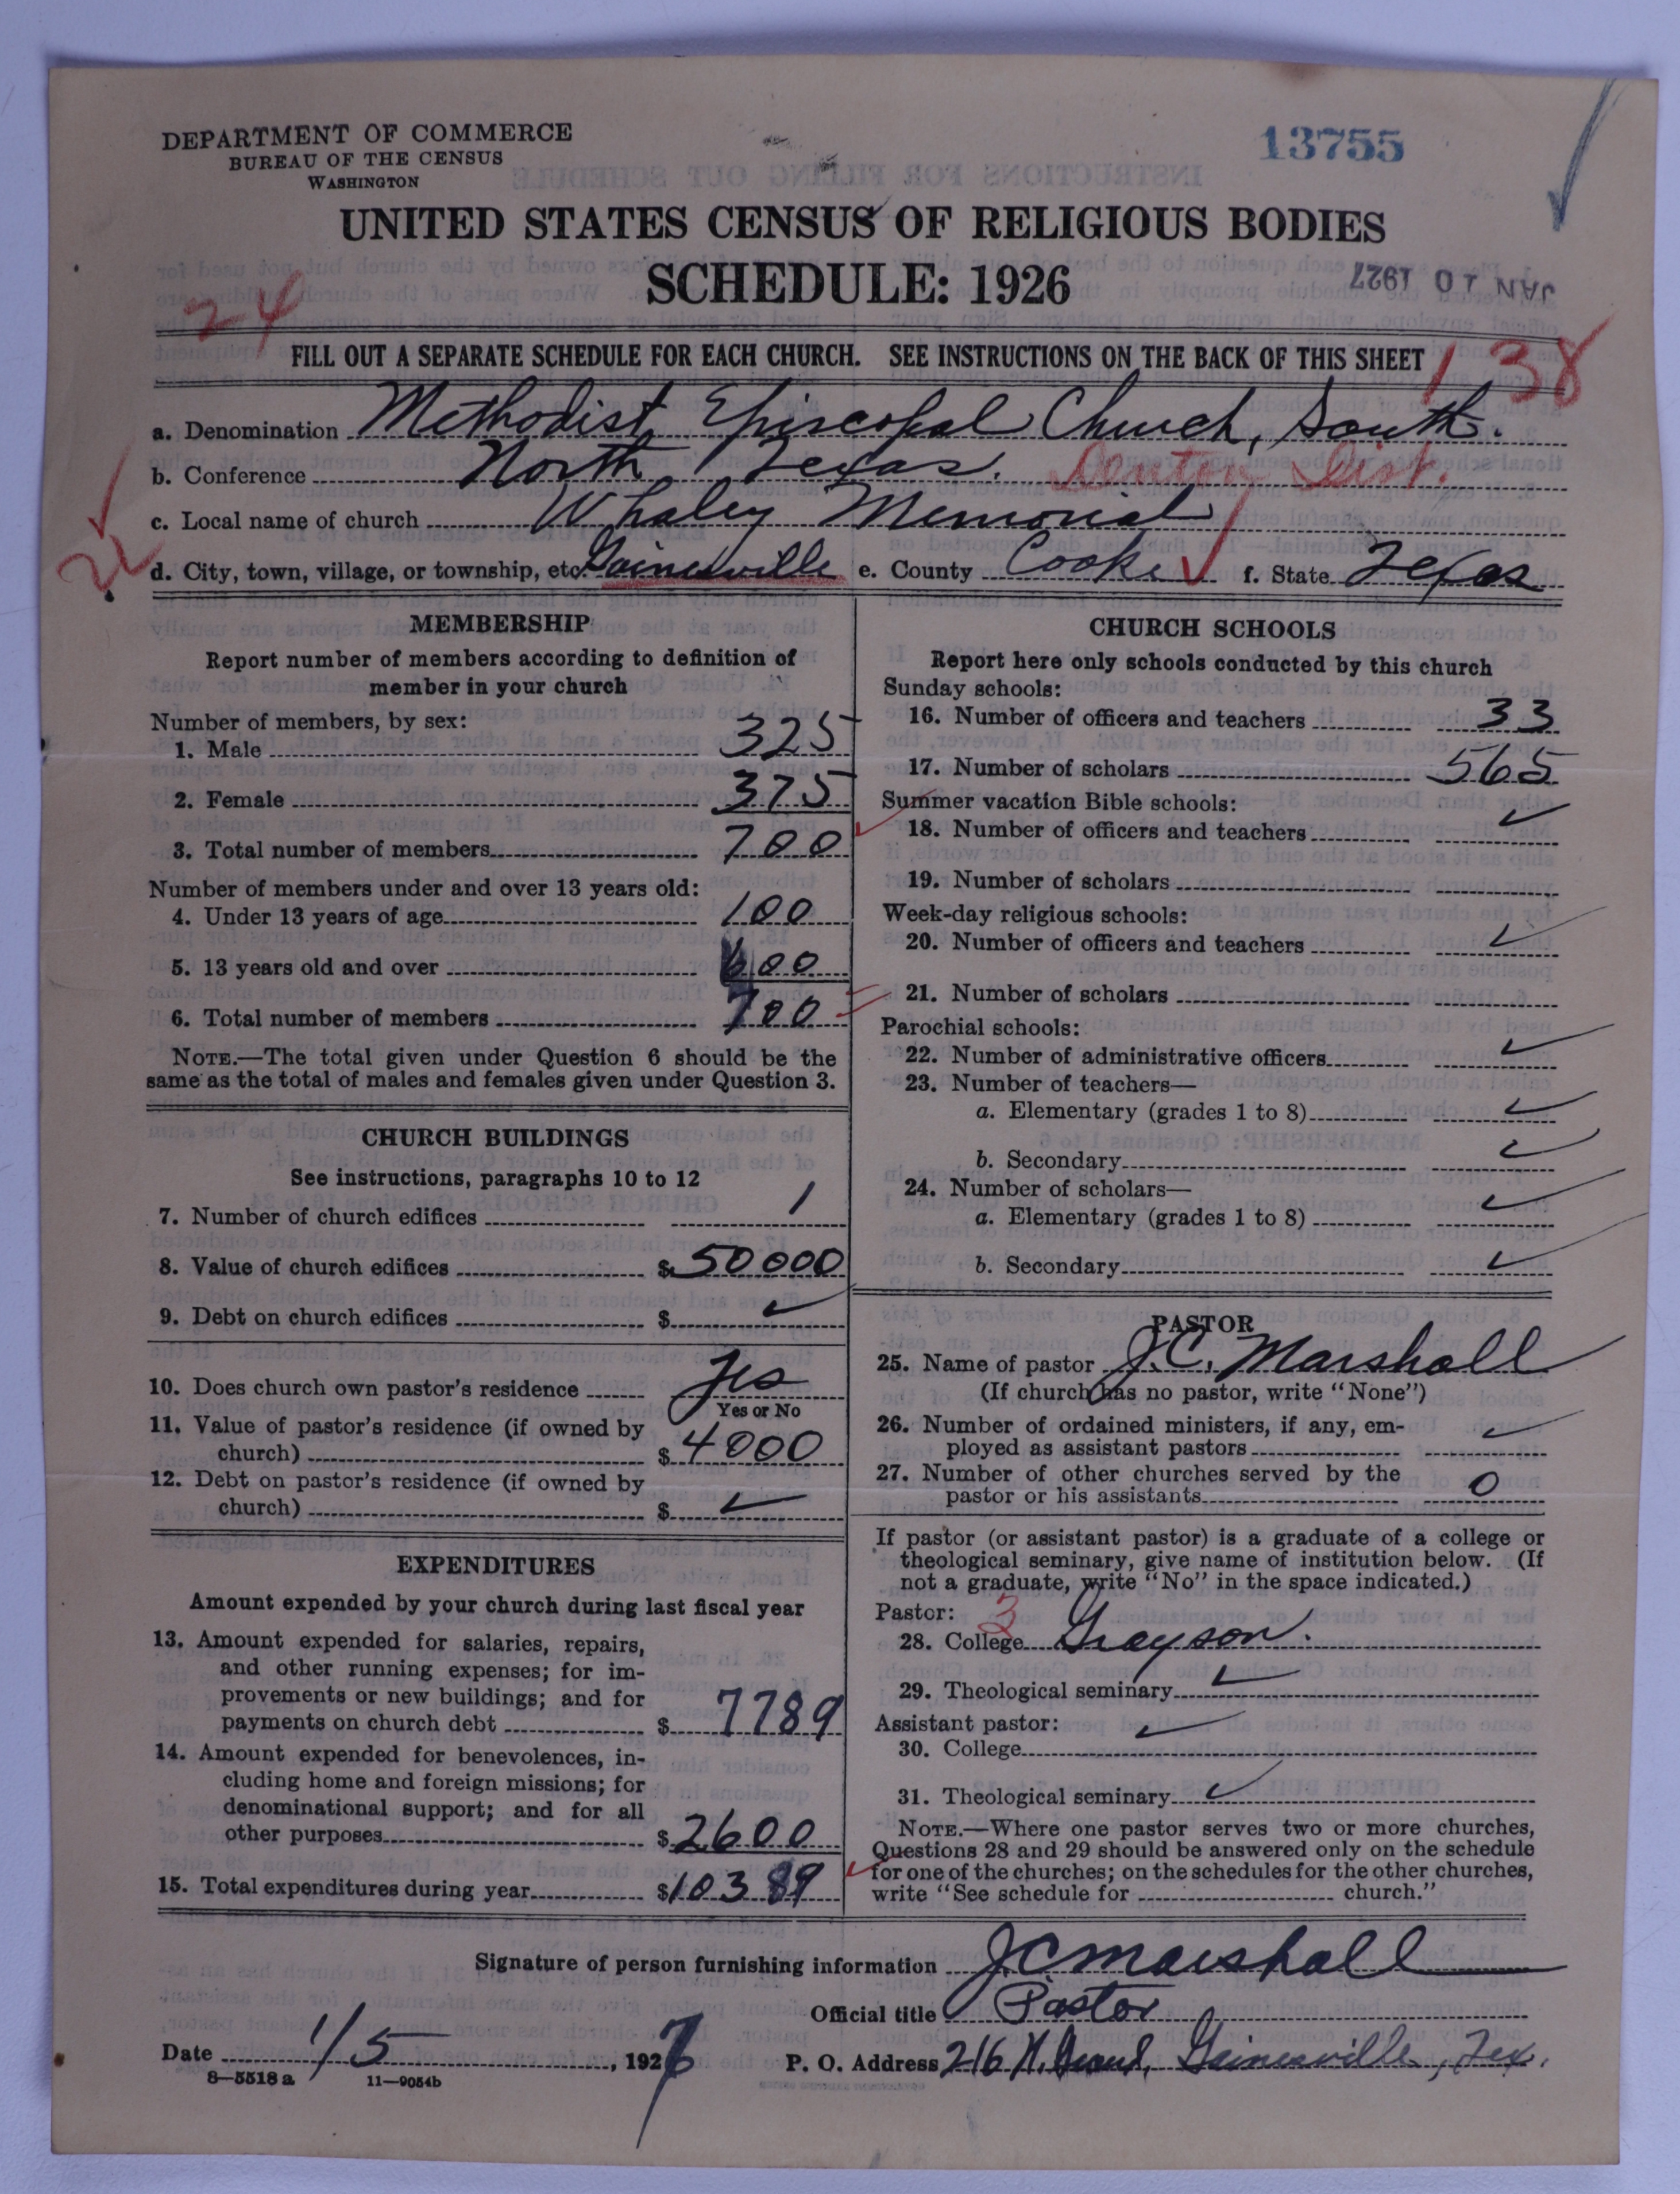 DEPARTMENT OF COMMERCE
BUREAU OF THE CENSUS
WASHINGTON
13755
UNITED STATES CENSUS OF RELIGIOUS BODIES
SCHEDULE: 1926
JAN 10 1927
24
FILL OUT A SEPARATE SCHEDULE FOR EACH CHURCH. SEE INSTRUCTIONS ON THE BACK OF THIS SHEET
138
a. Denomination Methodist Episcopal Church, South.
b. Conference North Texas. Denton Dist.
c. Local name of church Whaley Memorial
d. City, town, village, or township, etc. Gainesville e. County Cooke f. State Texas
MEMBERSHIP
Report number of members according to definition of
member in your church
Number of members, by sex:
1. Male 325
2. Female 375
3. Total number of members 700
Number of members under and over 13 years old:
4. Under 13 years of age 100
5. 13 years old and over 600
6. Total number of members 700
NOTE.—The total given under Question 6 should be the
same as the total of males and females given under Question 3.
CHURCH BUILDINGS
See instructions, paragraphs 10 to 12
7. Number of church edifices 1
8. Value of church edifices $ 50000
9. Debt on church edifices $ ✓
10. Does church own pastor's residence Yes
Yes or No
11. Value of pastor's residence (if owned by
church) $ 4000
12. Debt on pastor's residence (if owned by
church) $ ✓
EXPENDITURES
Amount expended by your church during last fiscal year
13. Amount expended for salaries, repairs,
and other running expenses; for im-
provements or new buildings; and for
payments on church debt $ 7789
14. Amount expended for benevolences, in-
cluding home and foreign missions; for
denominational support; and for all
other purposes $ 2600
15. Total expenditures during year $ 10389
CHURCH SCHOOLS
Report here only schools conducted by this church
Sunday schools:
16. Number of officers and teachers 33
17. Number of scholars 565
Summer vacation Bible schools:
18. Number of officers and teachers ✓
19. Number of scholars
Week-day religious schools:
20. Number of officers and teachers ✓
21. Number of scholars
Parochial schools:
22. Number of administrative officers ✓
23. Number of teachers—
a. Elementary (grades 1 to 8) ✓
b. Secondary ✓
24. Number of scholars—
a. Elementary (grades 1 to 8) ✓
b. Secondary ✓
PASTOR
25. Name of pastor J. C. Marshall
(If church has no pastor, write "None")
26. Number of ordained ministers, if any, em-
ployed as assistant pastors ✓
27. Number of other churches served by the
pastor or his assistants 0
If pastor (or assistant pastor) is a graduate of a college or
theological seminary, give name of institution below. (If
not a graduate, write "No" in the space indicated.)
Pastor: 3
28. College Grayson.
29. Theological seminary ✓
Assistant pastor: ✓
30. College
31. Theological seminary ✓
NOTE.—Where one pastor serves two or more churches,
Questions 28 and 29 should be answered only on the schedule
for one of the churches; on the schedules for the other churches,
write "See schedule for church."
Signature of person furnishing information J C Marshall
Official title Pastor
Date 1/5, 1927
P. O. Address 216 N. Gainesville, Tex.
8—5518a 11—9054b